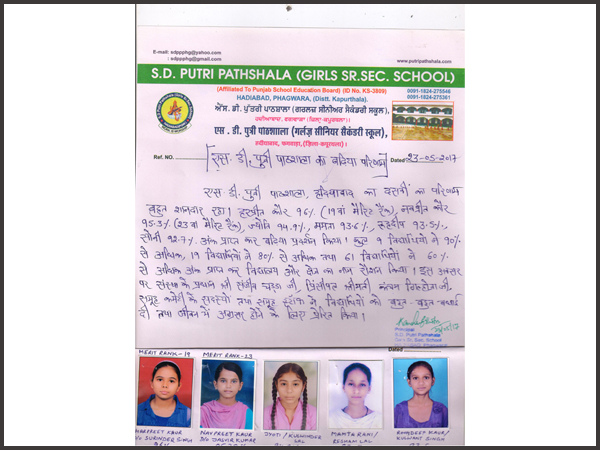 E-mail: sdppphg@yahoo.com
: sdppphg@gmail.com
www.putripathshala.com
S.D. PUTRI PATHSHALA (GIRLS SR.SEC. SCHOOL)
(Affiliated To Punjab School Education Board) (ID No. KS-3809)
HADIABAD, PHAGWARA, (Distt. Kapurthala).
0091-1824-275546
0091-1824-275361
ਐਸ. ਡੀ. ਪੁੱਤਰੀ ਪਾਠਸ਼ਾਲਾ (ਗਰਲਜ਼ ਸੀਨੀਅਰ ਸੈਕੰਡਰੀ ਸਕੂਲ),
ਹਦੀਆਬਾਦ, ਫਗਵਾੜਾ (ਜ਼ਿਲ੍ਹਾ-ਕਪੂਰਥਲਾ)
एस. डी. पुत्री पाठशाला (गर्लज़ सीनियर सैकंडरी स्कूल),
हदीयाबाद, फगवाड़ा, (ज़िला-कपूरथला)
Ref. NO.
Dated 23-05-2017
एस. डी. पुत्री पाठशाला का बढिया परिणाम
एस. डी. पुत्री पाठशाला, हदियाबाद का दसवीं का परिणाम
बहुत शानदार रहा। हरप्रीत कौर 96% (19वां मैरिट रैंक), नवप्रीत कौर
95.3% (23वां मैरिट रैंक), ज्योति 94.9%, ममता 93.6%, 93.5%,
सोनी 92.7% अंक प्राप्त कर बढिया प्रदर्शन किया। कुल 9 विद्यार्थियों ने 90%
से अधिक, 19 विद्यार्थियों ने 80% से अधिक तथा 61 विद्यार्थियों ने 60%
से अधिक अंक प्राप्त कर विद्यालय और क्षेत्र का नाम रोशन किया। इस अवसर
पर संस्था के प्रधान श्री जी, प्रिंसीपल श्रीमती कंचन जी,
समूह कमेटी के सदस्यों तथा समूह स्टाफ ने विद्यार्थियों को बहुत-बहुत बधाई
दी तथा जीवन में अग्रसर होने के लिए प्रेरित किया।
Principal
S.D. Putri Pathshala
Girls Sr. Sec. School
Dated
MERIT RANK-19
MERIT RANK-23
HARPREET KAUR
D/O SURINDER SINGH
NAVPREET KAUR
D/O JASVIR KUMAR
JYOTI / KULWINDER
LAL
MAMTA RANI /
RESHAM LAL
KULWANT SINGH